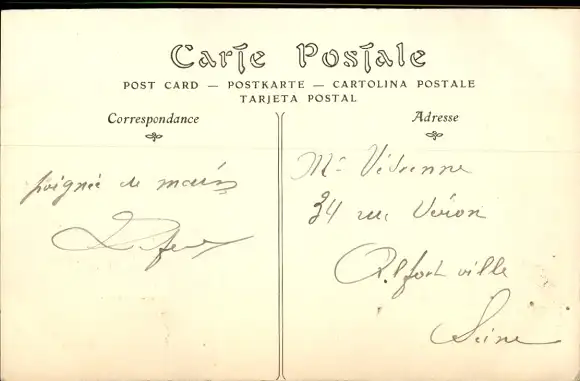 Carte Postale
POST CARD — POSTKARTE — CARTOLINA POSTALE
TARJETA POSTAL
Correspondance
Adresse
poignée de mains
Mr Védrenne
34 rue Véron
Alfortville
Seine